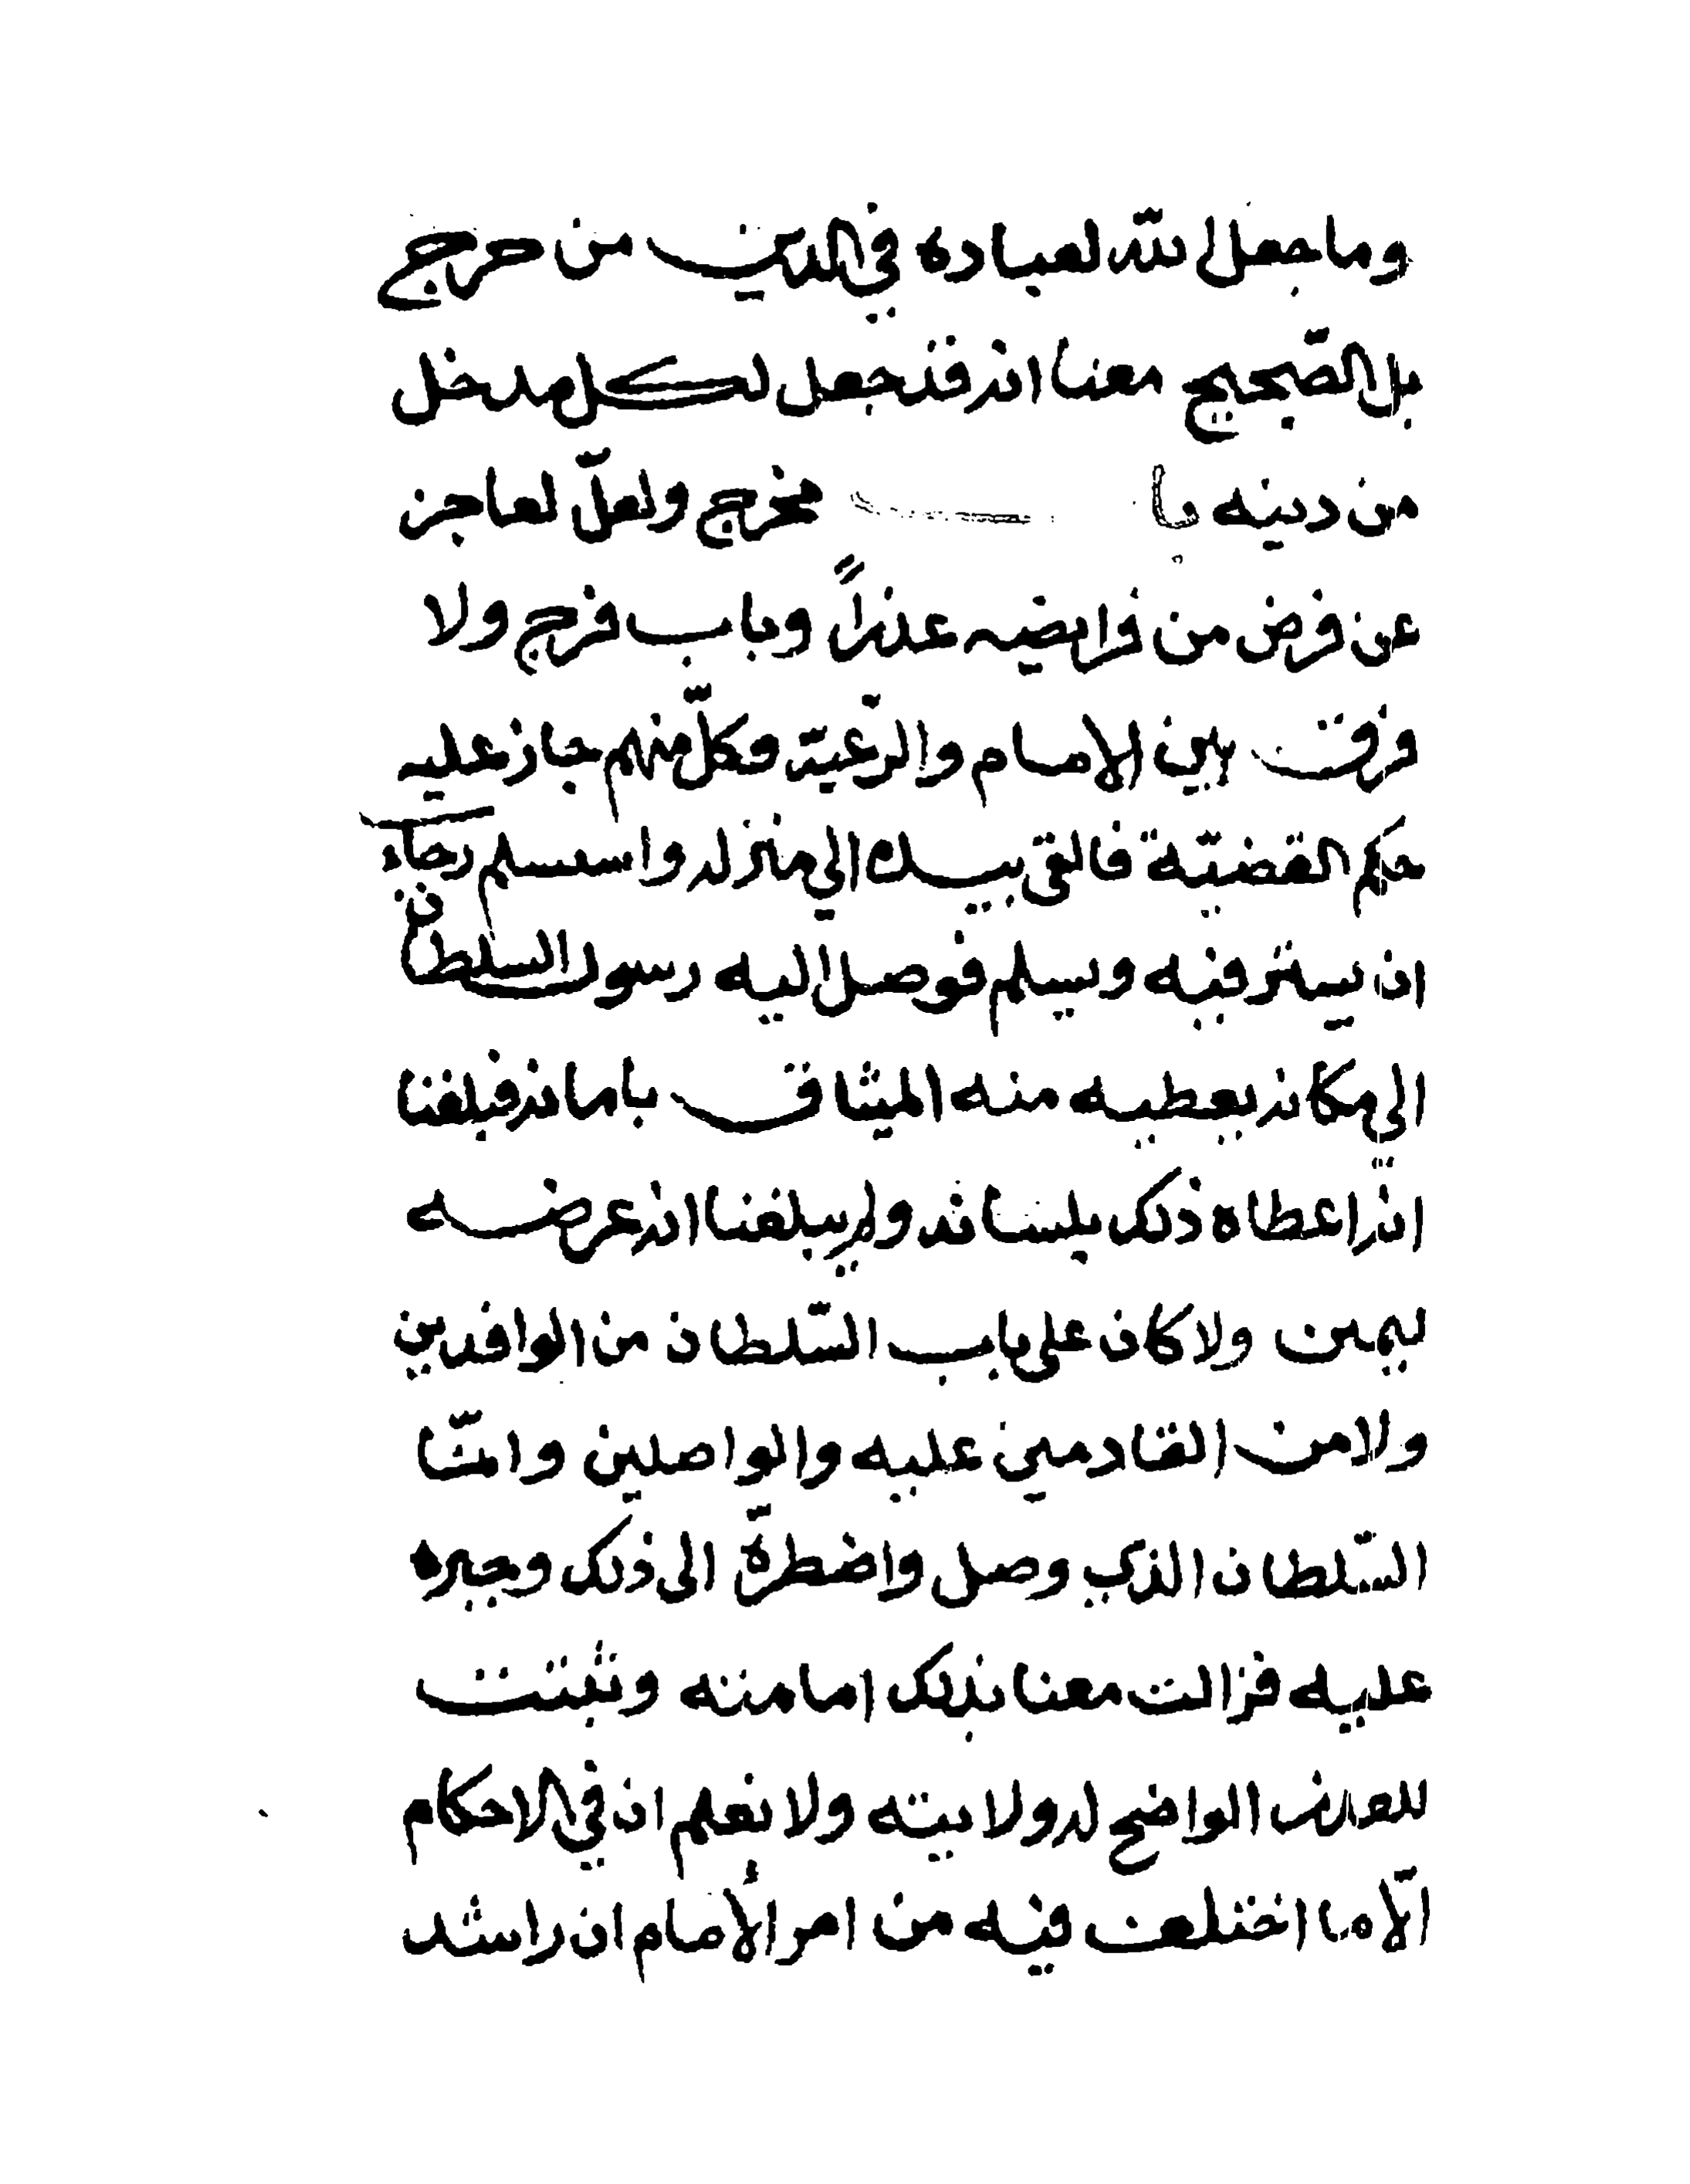 وما جعل الله لعباده في الدين من حرج
بل الصحيح معنا انه قد جعل لكل مدخل
من دينه با مخرج ولعل لعاجز
عن فرض من فرايضه عذراً وباب فرج ولا
فرق بين الامام والرعية وكل منهم جاز عليه
حكم القضية فالتقى الى منزله واستسلم رجاء
ان يستر فيه ويسلم فوصل اليه رسول السلطان
الى مكانه يعطيه منه الميثاق بامانه فبلغنا
انه اعطاه ذلك بلسانه ولم يبلغنا انه عرضه
ليمين ولا كان على باب السلطان من الوافدين
ولا من القادمين عليه والواصلين وانما
السلطان الذي وصل واضطره الى ذلك وجبره
عليه فزالت معنا بذلك امامته وثبتت
للعذر الواضح له ولايته ولا نعلم ان في الاحكام
الا ما اختلف فيه من امر الأمام ان راشد